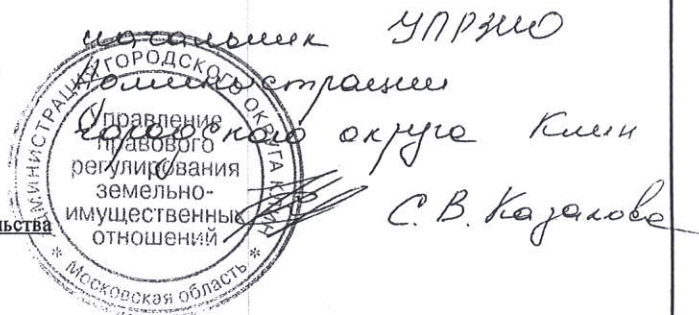 начальник УПРЗИО
администрации
городского округа Клин
С. В. Казакова
АДМИНИСТРАЦИЯ ГОРОДСКОГО ОКРУГА КЛИН
Управление
правового
регулирования
земельно-
имущественных
отношений
* Московская область *
льства